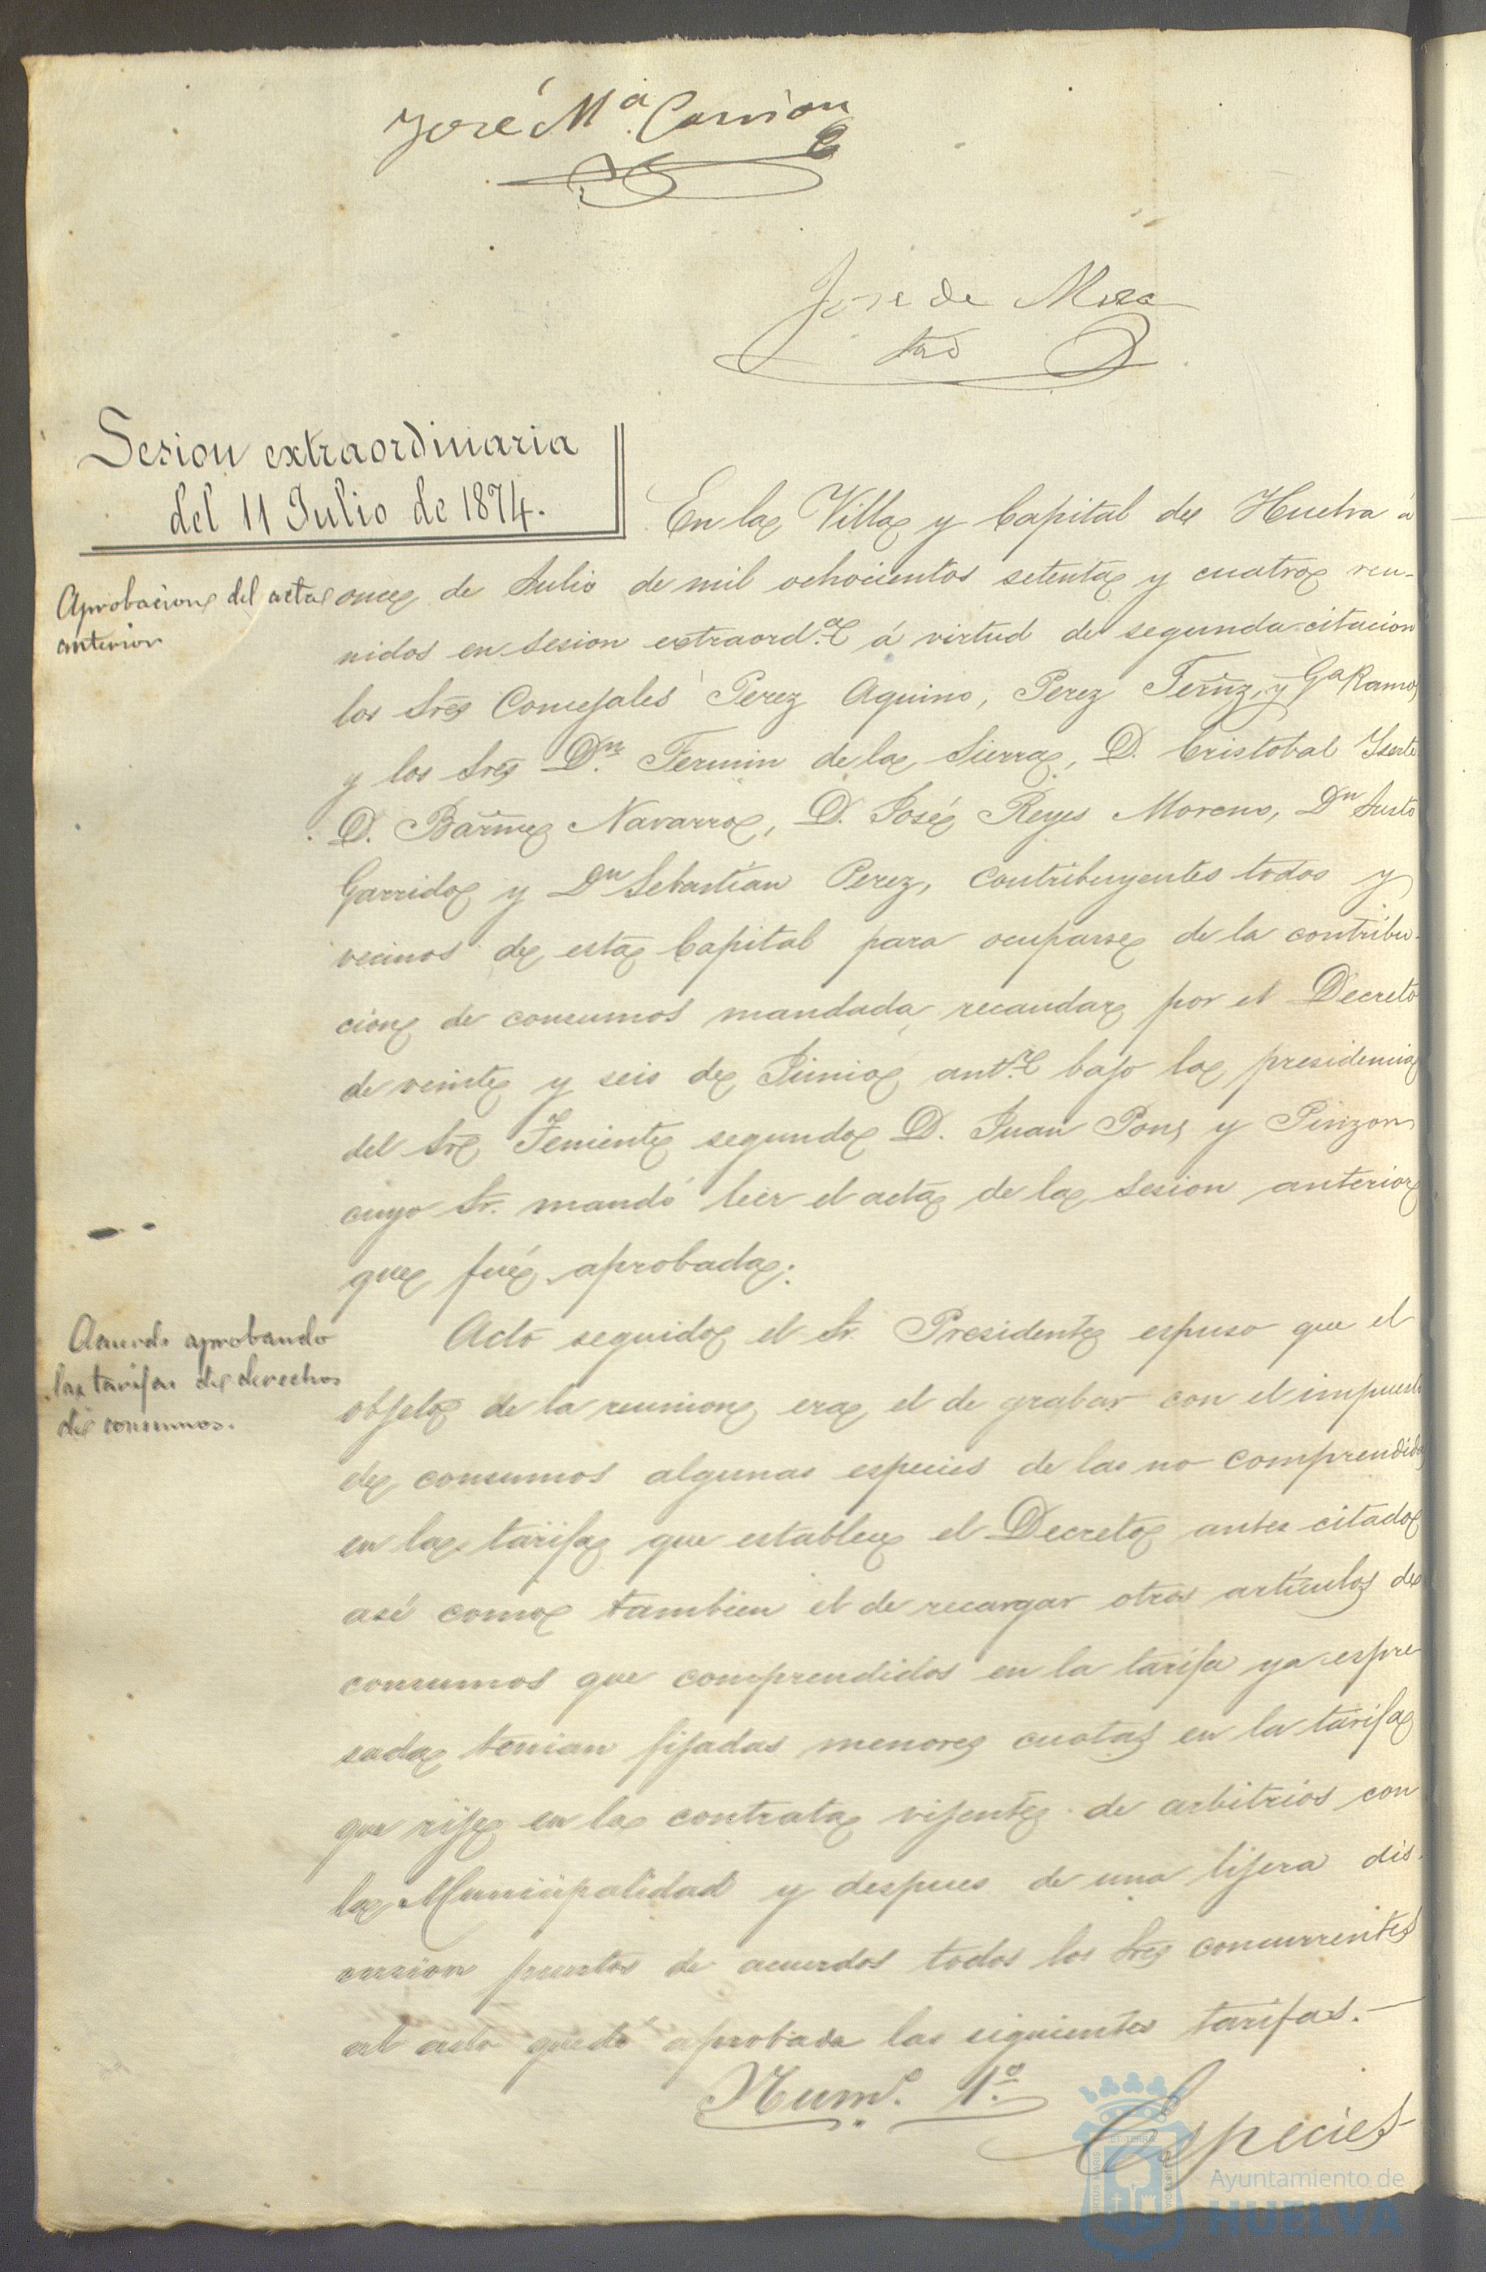 José Mª. Carrion
José de Mora
Srio
Sesion extraordinaria
del 11 Julio de 1874.
Aprobacion del acta
anterior
En la Villa y Capital de Huelva á
once de Julio de mil ochocientos setenta y cuatro reu-
nidos en sesion extraord.ª á virtud de segunda citacion
los Sres Concejales Perez Aquino, Perez Feruz, y Gª Ramos
y los Sres Dn. Fermin de la Sierra, D. Cristobal Iserte
D. Barme Navarro, D. José Reyes Moreno, Dn Justo
Garrido y Dn Sebastian Perez, contribuyentes todos y
vecinos de esta Capital para ocuparse de la contribu-
cion de consumos mandada recaudar por el Decreto
de veinte y seis de Junio ant.r bajo la presidencia
del Sr Teniente segundo D. Juan Pons y Pinzon
cuyo Sr. mandó leer el acta de la sesion anterior
que fué aprobada.
Acuerdo aprobando
las tarifas de derechos
de consumos.
Acto seguido el Sr. Presidente espuso que el
objeto de la reunion era el de grabar con el impuesto
de consumos algunas especies de las no comprendidas
en la tarifa que establece el Decreto antes citado
asi como tambien el de recargar otros articulos de
consumos que comprendidos en la tarifa ya espre
sada tenian fijadas menores cuotas en la tarifa
que rije en la contrata vijente de arbitrios con
la Municipalidad y despues de una lijera dis-
cusion puestos de acuerdos todos los Sres concurrentes
al acto quedó aprobada las siguientes tarifas.—
Numº. 1º.
Especies
Ayuntamiento de
HUELVA